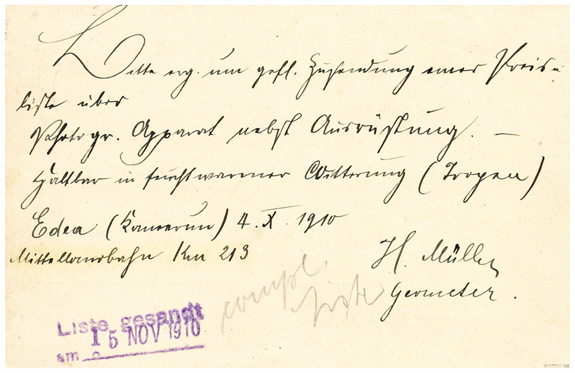 Bitte erg. um gefl. Zusendung einer Preis-
liste über
Photogr. Apparat nebst Ausrüstung. —
Haltbar in feuchtwarmer Witterung (Tropen)
Edea (Kamerun) 4. X. 1910
Mittellandbahn Km 213
H. Müller
Geometer.
compl.
Liste
Liste gesandt
15 NOV 1910
am